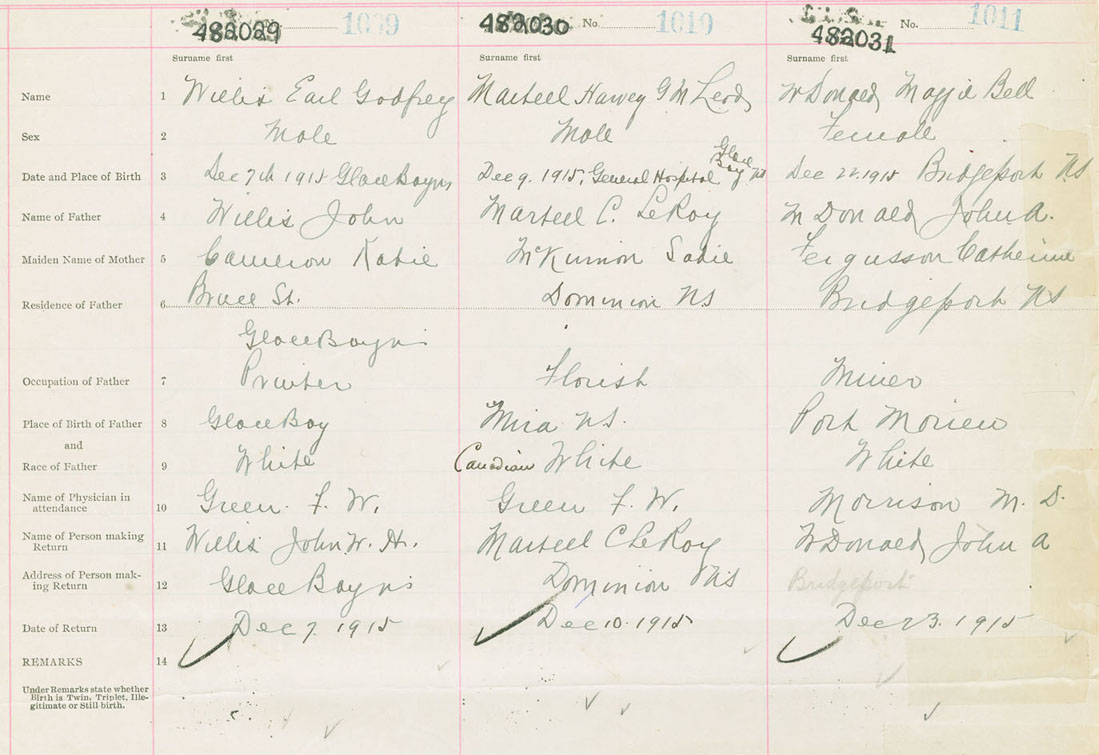 482029 482030 No. 1010 No. 1011
482031
Surname first Surname first Surname first
Name 1 Willis Earl Godfrey Marteell Harvey G McLeod McDonald Maggie Bell
Sex 2 Male Male Female
Glace
Bay
Date and Place of Birth 3 Dec 7th 1915 Glace Bay ns Dec 9. 1915, General Hospital NS Dec 22 1915 Bridgeport NS
Name of Father 4 Willis John Marteell C. LeRoy McDonald John A.
Maiden Name of Mother 5 Cameron Katie McKinnon Sadie Fergusson Catherine
Bruce St.
Residence of Father 6 Dominion NS Bridgeport NS
Glace Bay ns
Occupation of Father 7 Printer Florist Miner
Place of Birth of Father 8 Glace Bay Mira NS. Port Morien
and
Race of Father 9 White Canadian White White
Name of Physician in
attendance 10 Green. F. W. Green F. W. Morrison M. D.
Name of Person making
Return 11 Willis John W. H. Marteell C LeRoy McDonald John A
Address of Person mak-
ing Return 12 Glace Bay ns Dominion NS Bridgeport
Date of Return 13 Dec 7. 1915 Dec 10. 1915 Dec 23. 1915
REMARKS 14
Under Remarks state whether
Birth is Twin, Triplet, Ille-
gitimate or Still birth.